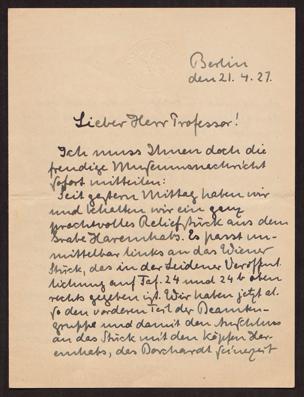 Berlin
den 21. 4. 27.
Lieber Herr Professor!
Ich muss Ihnen doch die
freudige Museumsnachricht
sofort mitteilen:
Seit gestern Mittag haben wir
und behalten wir ein ganz
prachtvolles Reliefstück aus dem
Grabe Haremhabs. Es passt un-
mittelbar links an das Wiener
Stück, das in der Leidener Veröffent-
lichung auf Taf. 24 und 24 b oben
rechts gegeben ist. Wir haben jetzt al-
so den vorderen Teil der Beamten-
gruppe und damit den Anschluss
an das Stück mit den Köpfen Har-
emhabs, das Borchardt seinerzeit